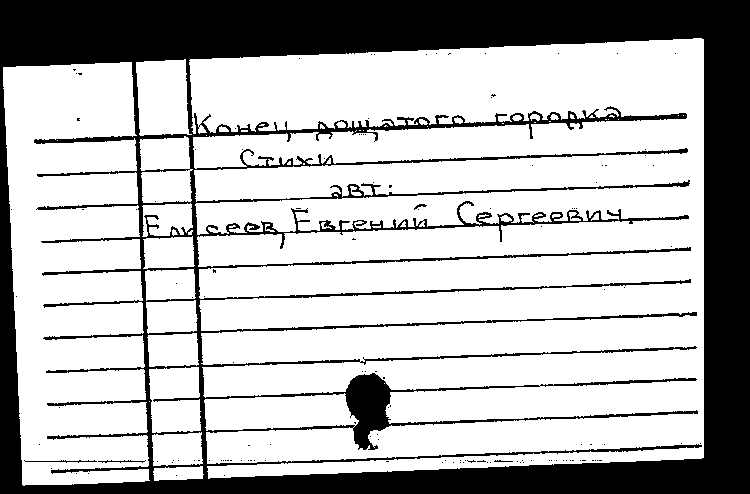 Конец дощатого городка
Стихи
авт:
Елисеев, Евгений Сергеевич.